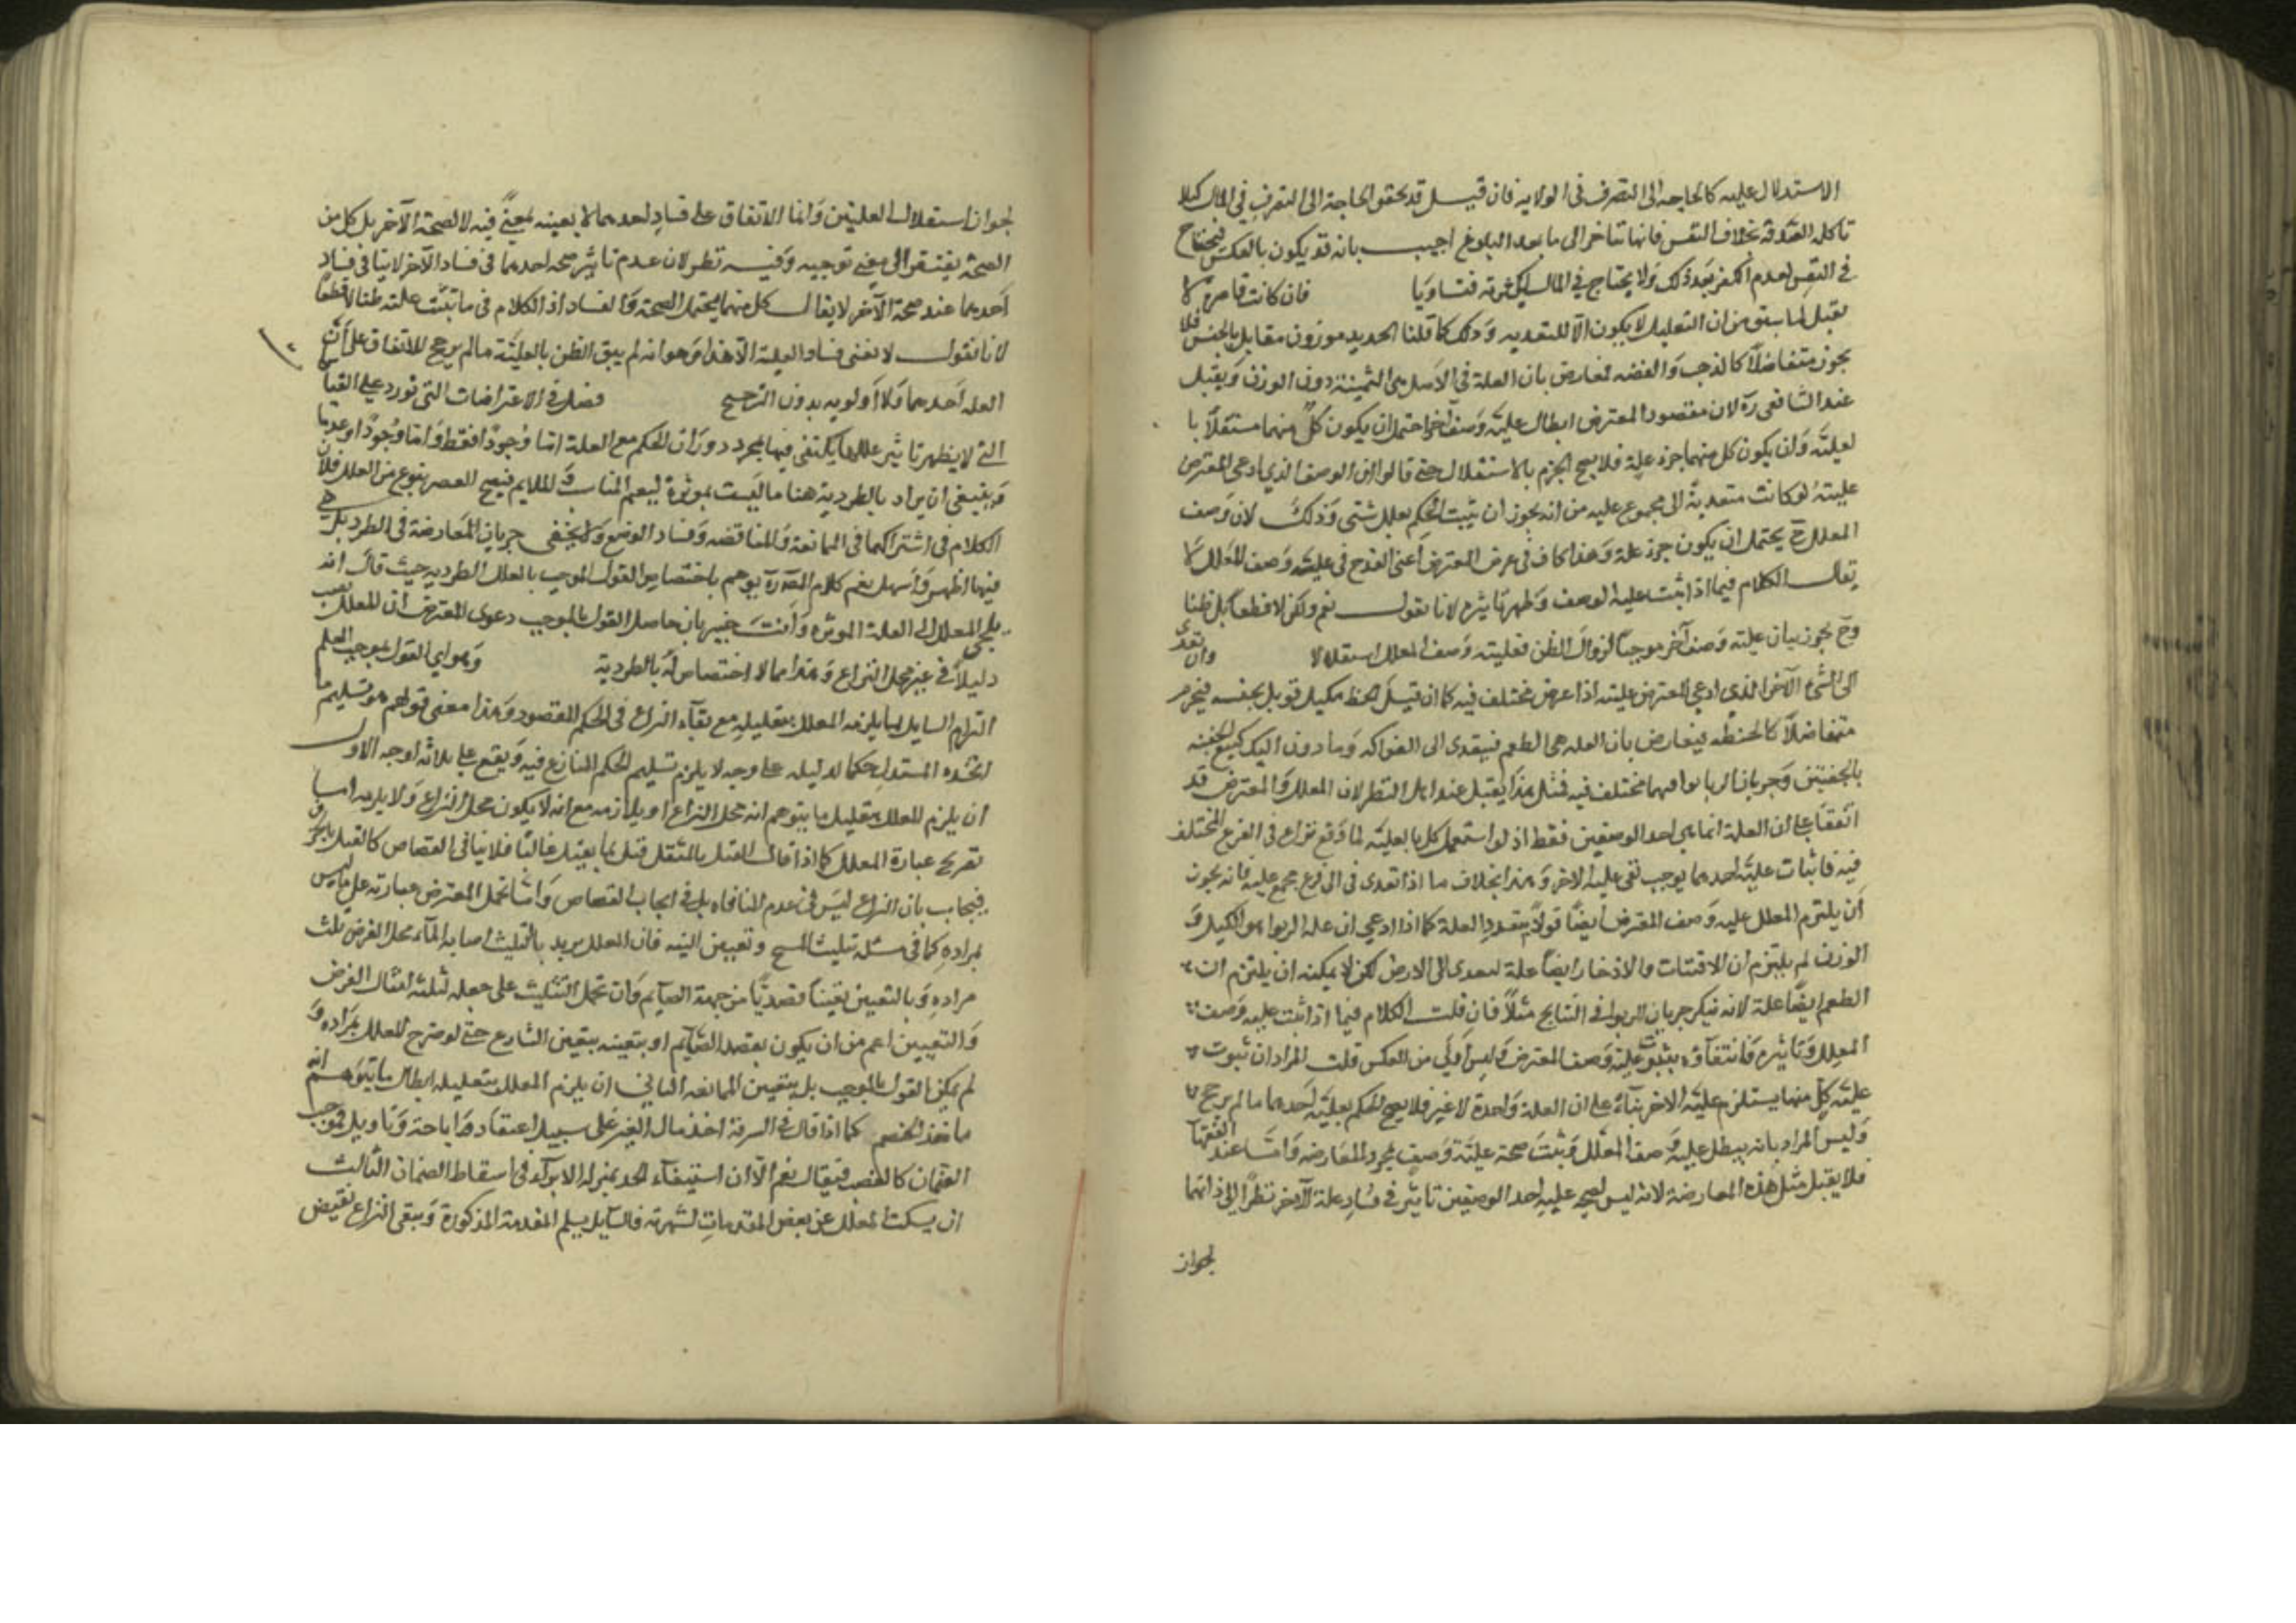 الاستدلال عليه كالحاجة الى التصرف فى الولاية فان قيل قد تحقق الحاجة الى التصرف في المال كيلا
تاكله الصدقة بخلاف النفس فانها تتاخر الى ما بعد البلوغ اجيب بانه قد يكون بالعكس فيحتاج
في النفس لعدم الكفو بعد ذلك ولا يحتاج في المال لكثرته فتساويا فان كانت قاصرة لا
تقبل لما سبق من ان التعليل لا يكون الا للتعديه وذلك كما قلنا الحديد موزون مقابل بالجنس فلا
يجوز متفاضلا كالذهب والفضه فعارض بان العلة فى الاصل هى الثمنية دون الوزن ويقبل
عند الشافعى ره لان مقصود المعترض ابطال علية وصف اخر احتمل ان يكون كل منهما مستقلا با
لعلية وان يكون كل منهما جزء علة فلا يصح الجزم بالاستقلال حتى قالوا ان الوصف الذي ادعى المعترض
عليته لو كانت متعدية الى مجموع عليه من انه يجوز ان يثبت الحكم بعلل شتى وذلك لان وصف
المعلل ح يحتمل ان يكون جزء علة وهذا كاف فى غرض المعترض اعنى القدح فى علية وصف المعلل لا
يقال الكلام فيما اذا ثبت علية الوصف وظهر تاثيره لانا نقول نعم ولكن لا قطعا بل ظنا
وح يجوز بيان علية وصف آخر موجبا لزوال الظن فعلية وصف المعلل استقلالا وان تعدى
الى الشئ الآخر الذى ادعى المعترض عليته اذا عرض مختلف فيه كما ان قيل الحنطة مكيل قوبل بجنسه فيحرم
متفاضلا كالحنطه فيعارض بان العله هى الطعم فيتعدى الى الفواكه وما دون الكيل كبيع الحفنه
بالحفنتين وجريان الربا بوا فيهما مختلف فيه فمثل هذا يقبل عند اهل النظر لان المعلل والمعترض قد
اتفقا على ان العلة انما هى احد الوصفين فقط اذ لو استعمل كل بالعلية لما وقع نزاع فى الفرع المختلف
فيه فاثبات علية احدهما يوجب نفى علية الاخر وهذا بخلاف ما اذا تعدى فى الى فرع مجمع عليه فانه يجوز
ان يلتزم المعلل علية وصف المعترض ايضا قولا بتعدد العلة كما اذا ادعى ان علة الربوا هو الكيل و
الوزن لم يلتزم ان الاقتيات والادخار ايضا علة ليعدى الى الارض لكن لا يمكنه ان يلتزم ان
الطعم ايضا علة لانه ينكر جريان الربوا فى التفايح مثلا فان قلت الكلام فيما اذا ثبت علية وصف
المعلل وتاثيره فانتفآؤه بثبوت علية وصف المعترض وليس اولى من العكس قلت المراد ان ثبوت
علية كل منهما يستلزم علية الاخر بناء على ان العلة واحدة لا غير فلا يصح الحكم بعلية احدهما ما لم يرجح
وليس المراد بانه يبطل علية وصف المعلل ويثبت صحة علية وصف بمجرد المعارضه واما عند الفقهآ
فلا يقبل مثل هذه المعارضة لانه ليس لصحة علية احد الوصفين تاثير فى فساد علة الآخر نظرا الى ذاتهما
لجواز
لجواز استقلال العليتين وانما الاتفاق على فساد احدهما لا بعينه لمعنى فيه لا لصحة الآخر بل كل من
الصحة يفتقر الى معنى توجبه وفيه نظر لان عدم تاثير صحة احدهما فى فساد الآخر لا ينافى فساد
احدهما عند صحة الآخر لا يقال كل منهما يحتمل الصحة والفساد اذ الكلام فى ما ثبت علته ظنا لا قطعا
لانا نقول لا نعنى فساد العلية الا هذا وهو انه لم يبق الظن بالعلية ما لم يرجح للاتفاق على ان
العلة احدهما ولا اولويه بدون الترجيح فصل فى الاعتراضات التى تورد على القيا
التى لا يظهر تاثير عللها يكتفى فيها بمجرد دوران الحكم مع العلة اما وجودا فقط واما وجودا وعدما
وينبغى ان يراد بالطردية هنا ما ليست بموثرة ليعم المناسب والملايم فيصح الحصر بنوع من العلل فلان
الكلام فى اشتراكهما فى الممانعة والمناقضه وفساد الوضع ولا يخفى جريان المعارضة فى الطرد بل هى
فيها اظهر واسهل نعم كلام المص ره يوهم باختصاص القول الموجب بالعلل الطرديه حيث قال انه
يلجئ المعلل الى العلة الموثره وانت خبير بان حاصل القول بالموجب دعوى المعترض ان المعلل نصب
دليلا فى غير محل النزاع وهذا مما لا اختصاص له بالطردية وهو اي القول بموجب العلم
التزام السايل لما يلزمه المعلل بتعليله مع بقاء النزاع فى الحكم المقصود وهذا معنى قولهم هو تسليم ما
اتخذه المستدل حكما لدليله على وجه لا يلزم تسليم الحكم المتنازع فيه ويقع على ثلاثة اوجه الاول
ان يلزم المعلل بتعليله ما يتوهم انه محل النزاع او يلازمه مع انه لا يكون محل النزاع ولا يلزمه اما
بصريح عبارة المعلل كما اذا قال القتل بالمثقل قتل بما يقتل غالبا فلا ينافى القصاص كالقتل بالحرق
فيجاب بان النزاع ليس فى عدم المنافاه بل فى ايجاب القصاص واما بحمل المعترض عبارته على ما ليس
بمراده كما فى مسئلة تثليث المسح وتعيين النيه فان المعلل يريد بالتثليث اصابة المآء محل الفرض ثلث
مراده وبالتعيين تعينا قصديا من جهة الصآيم وان تحمل التثليث على جعله ثلثة امثال الفرض
والتعيين اعم من ان يكون بقصد الصآيم او بتعينه بتعيين الشارع حتى لو صرح المعلل بمراده
لم يمكن القول بالموجب بل يتعين الممانعه الثانى ان يلزم المعلل بتعليله ابطال ما يتوهم انه
ماخذ الخصم كما اذا قال فى السرقة اخذ مال الغير على سبيل اعتقاد واباحة وتاويل فيوجب
الضمان كالغصب فيقال نعم الا ان استيفآء الحد بمنزلة الابرآء فى اسقاط الضمان الثالث
ان يسكت المعلل عن بعض المقدمات لشهرته فالسآيل يسلم المقدمة المذكورة ويبقى النزاع بنقيض